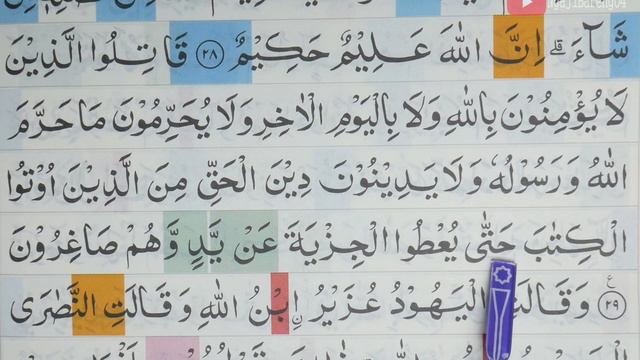 شَاۤءَ ۗ اِنَّ اللّٰهَ عَلِيْمٌ حَكِيْمٌ ٢٨ قَاتِلُوا الَّذِيْنَ
لَا يُؤْمِنُوْنَ بِاللّٰهِ وَلَا بِالْيَوْمِ الْاٰخِرِ وَلَا يُحَرِّمُوْنَ مَا حَرَّمَ
اللّٰهُ وَرَسُوْلُهٗ وَلَا يَدِيْنُوْنَ دِيْنَ الْحَقِّ مِنَ الَّذِيْنَ اُوْتُوا
الْكِتٰبَ حَتّٰى يُعْطُوا الْجِزْيَةَ عَنْ يَّدٍ وَّهُمْ صَاغِرُوْنَ
٢٩ ع وَقَالَتِ الْيَهُوْدُ عُزَيْرُ اِبْنُ اللّٰهِ وَقَالَتِ النَّصٰرَى